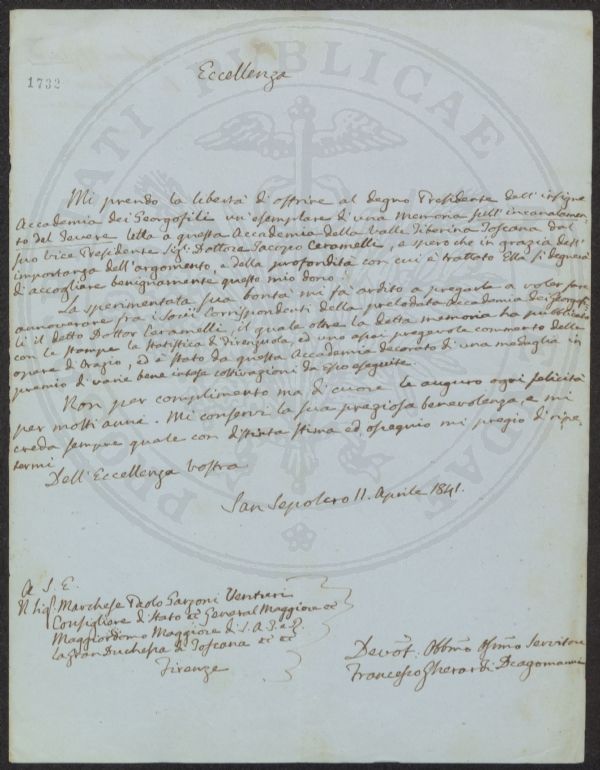 1732
Eccellenza
Mi prendo la libertà d'offrire al degno Presidente dell'insigne
Accademia dei Georgofili un'esemplare d'una Memoria sull'incanalamen-
to del Tevere letta a questa Accademia della Valle Tiberina Toscana dal
suo Vice Presidente Sig. Dottore Jacopo Ceramelli, e spero che in grazia dell'
importanza dell'argomento, e della profondità con cui è trattato Ella si degnerà
d'accogliere benignamente questo mio dono.
La sperimentata sua bontà mi fa ardito a pregarla a voler fare
annoverare fra i Socii Corrispondenti della prelodata Accademia dei Georgofi-
li il detto Dottor Caramelli il quale oltre la detta memoria ha pubblicato
con le stampe la Statistica di Firenzuola, ed uno assai pregevole commento delle
opere di Orazio, ed è stato da questa Accademia decorato di una medaglia in
premio di varie bene intese coltivazioni da esso eseguite.
Non per complimento ma di cuore le auguro ogni felicità
per molti anni. Mi conservi la sua preziosa benevolenza, e mi
creda sempre quale con distinta stima ed ossequio mi pregio di ripe-
termi
Dell'Eccellenza Vostra
San Sepolcro 11. Aprile 1841.
A S. E.
Il Sig. Marchese Paolo Garzoni Venturi
Consigliere di Stato &c General Maggiore &c
Maggiordomo Maggiore di S. A. I. e R.
la Gran Duchessa di Toscana &c &c
Firenze
Devot. Obbmo Osmo Servitore
Francesco Gherardi Dragomanni
PUBLICAE